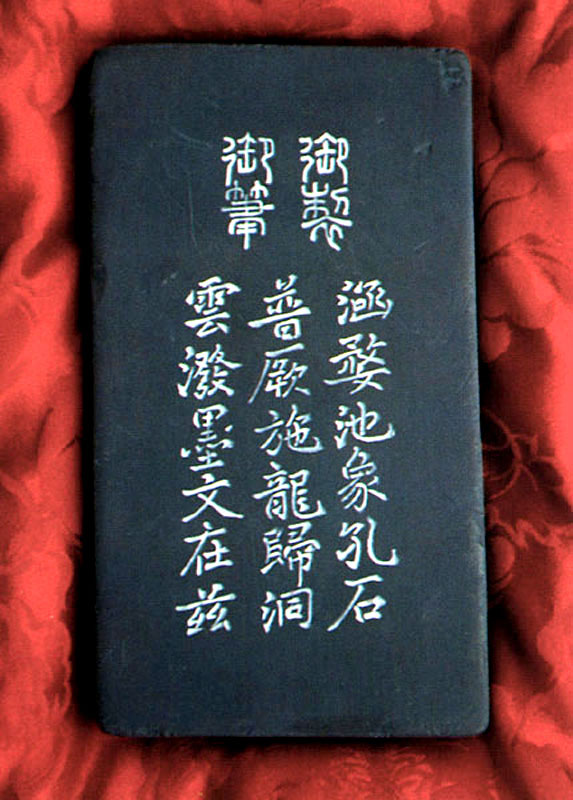 御製
御筆
涵婺池象孔石
普厥施龍歸洞
雲潑墨文在茲